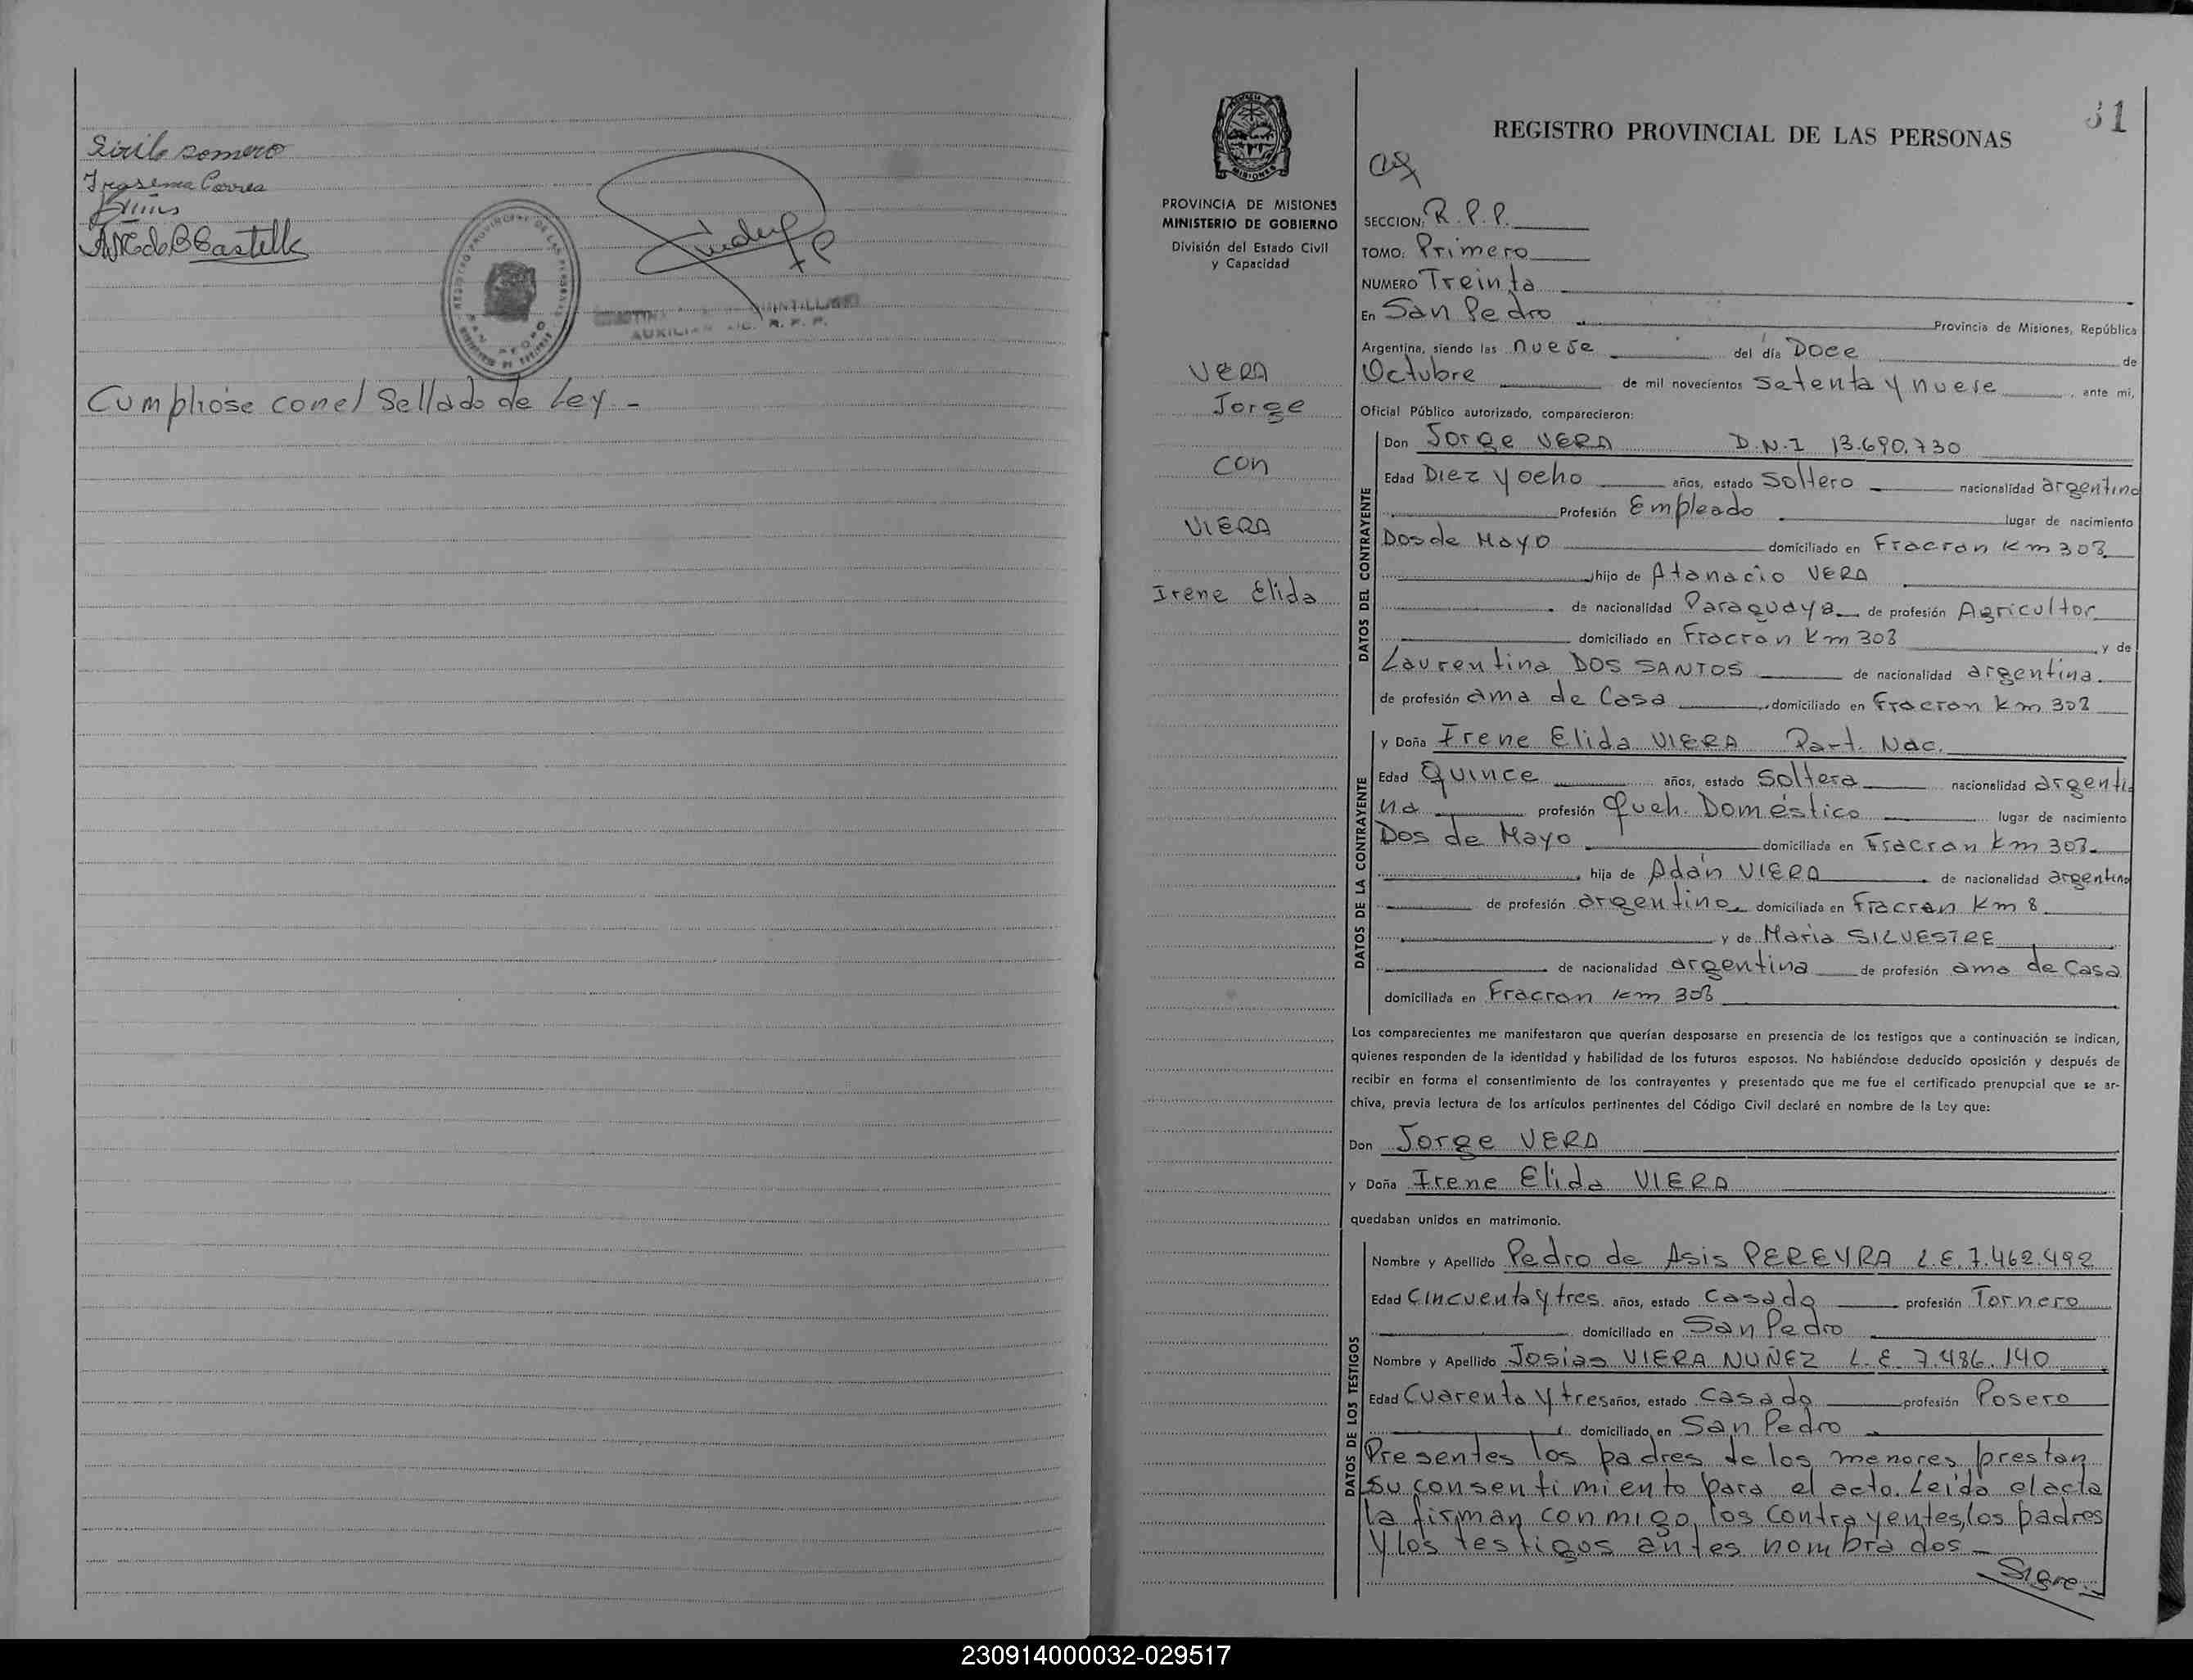 Sirilo Romero
Irasema Correa
Cumplióse con el Sellado de Ley -
31
PROVINCIA DE MISIONES
MINISTERIO DE GOBIERNO
División del Estado Civil
y Capacidad
VERA
Jorge
con
VIERA
Irene Elida
REGISTRO PROVINCIAL DE LAS PERSONAS
SECCION: R.P.P.
TOMO: Primero
NUMERO Treinta
En San Pedro Provincia de Misiones, República
Argentina, siendo las nueve del día Doce de
Octubre de mil novecientos setenta y nueve, ante mi,
Oficial Público autorizado, comparecieron:
DATOS DEL CONTRAYENTE
Don Jorge VERA D.N.I 13.690.730
Edad Diez y ocho años, estado Soltero nacionalidad argentino
Profesión Empleado lugar de nacimiento
Dos de Mayo domiciliado en Fracran Km 303
hijo de Atanacio VERA
de nacionalidad Paraguaya de profesión Agricultor
domiciliado en Fracran Km 303 y de
Laurentina DOS SANTOS de nacionalidad argentina.
de profesión ama de Casa, domiciliado en Fracran Km 303
DATOS DE LA CONTRAYENTE
y Doña Irene Elida VIERA Part. Nac.
Edad Quince años, estado Soltera nacionalidad argenti
na profesión Queh. Doméstico lugar de nacimiento
Dos de Mayo domiciliada en Fracran Km 303
hija de Adán VIERA de nacionalidad argentino
de profesión argentino domiciliada en Fracran Km 8
y de Maria SILVESTRE
de nacionalidad argentina de profesión ama de Casa
domiciliada en Fracran Km 303
Los comparecientes me manifestaron que querían desposarse en presencia de los testigos que a continuación se indican,
quienes responden de la identidad y habilidad de los futuros esposos. No habiéndose deducido oposición y después de
recibir en forma el consentimiento de los contrayentes y presentado que me fue el certificado prenupcial que se ar-
chiva, previa lectura de los artículos pertinentes del Código Civil declaré en nombre de la Ley que:
Don Jorge VERA
y Doña Irene Elida VIERA
quedaban unidos en matrimonio.
DATOS DE LOS TESTIGOS
Nombre y Apellido Pedro de Asis PEREYRA L.E. 7.462.492
Edad Cincuenta y tres años, estado Casado profesión Tornero
domiciliado en San Pedro
Nombre y Apellido Josias VIERA NUÑEZ L.E. 7.486.140
Edad Cuarenta y tres años, estado Casado profesión Posero
domiciliado en San Pedro
Presentes los padres de los menores prestan
su consentimiento para el acto. Leida el acta
la firman conmigo, los contrayentes, los padres
y los testigos antes nombrados -
Sigue.
230914000032-029517